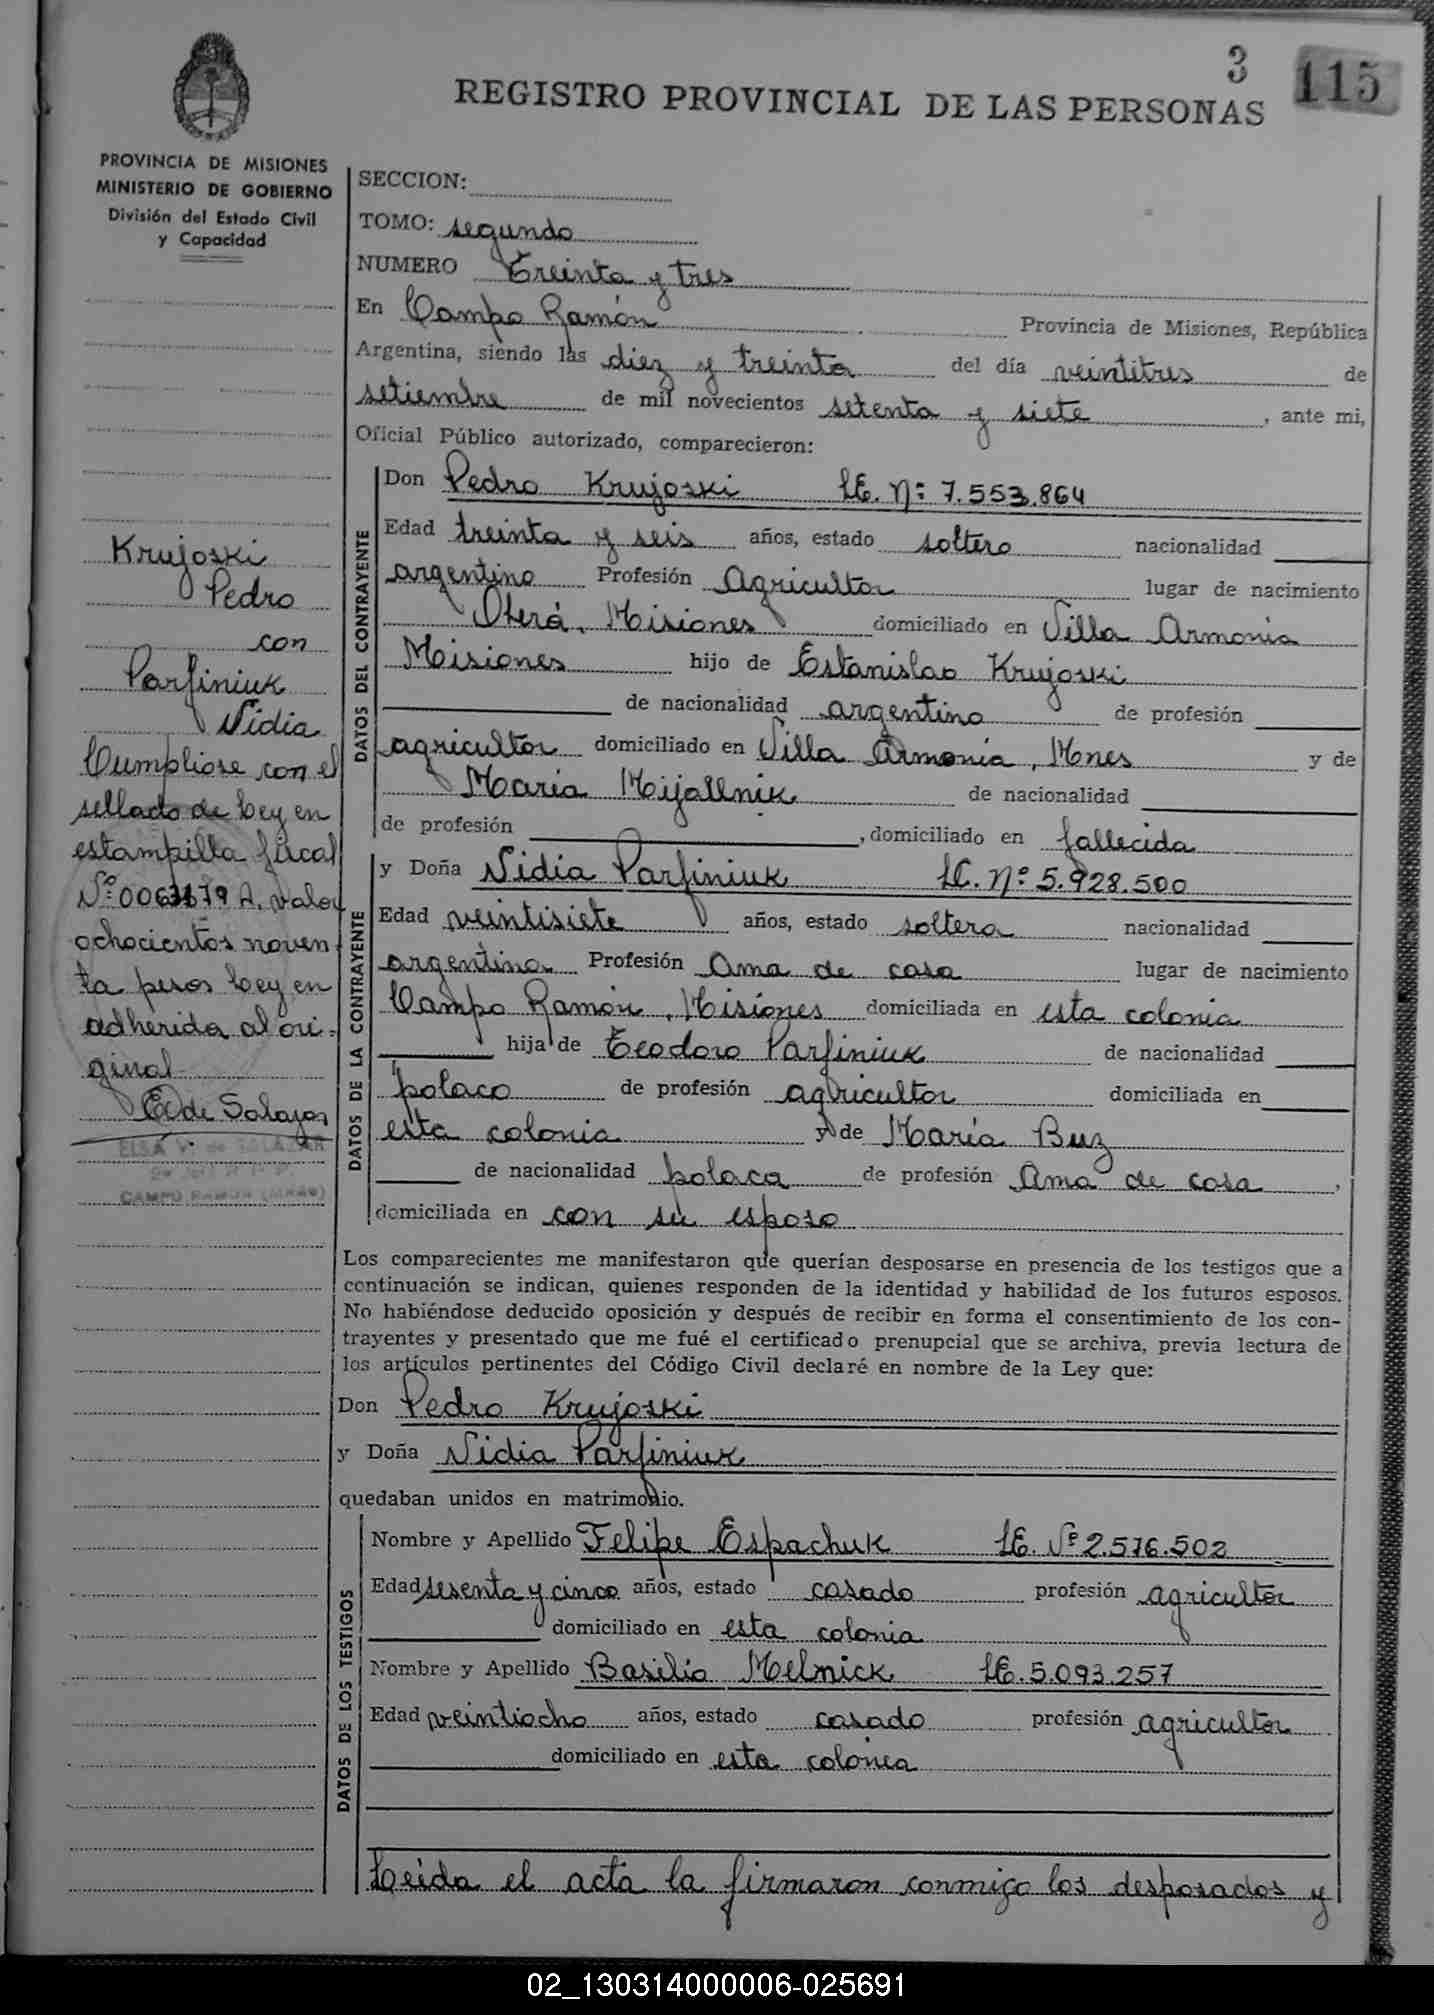 3 115
REGISTRO PROVINCIAL DE LAS PERSONAS
PROVINCIA DE MISIONES
MINISTERIO DE GOBIERNO
División del Estado Civil
y Capacidad
Krujoski
Pedro
con
Parfiniuk
Nidia
Cumpliose con el
sellado de Ley en
estampilla fiscal
Nº 0063679 A. valor
ochocientos noven-
ta pesos Ley en
adherida al ori-
ginal
E. de Salazar
ELSA V. de SALAZAR
CAMPO RAMON (MNES)
SECCION:
TOMO: segundo
NUMERO Treinta y tres
En Campo Ramón Provincia de Misiones, República
Argentina, siendo las diez y treinta del día veintitres de
setiembre de mil novecientos setenta y siete, ante mi,
Oficial Público autorizado, comparecieron:
DATOS DEL CONTRAYENTE
Don Pedro Krujoski LE. Nº 7.553.864
Edad treinta y seis años, estado soltero nacionalidad
argentino Profesión Agricultor lugar de nacimiento
Oberá, Misiones domiciliado en Villa Armonia
Misiones hijo de Estanislao Krujoski
de nacionalidad argentino de profesión
agricultor domiciliado en Villa Armonia, Mnes y de
Maria Mijallnik de nacionalidad
de profesión , domiciliado en fallecida
DATOS DE LA CONTRAYENTE
y Doña Nidia Parfiniuk LC. Nº 5.928.500
Edad veintisiete años, estado soltera nacionalidad
argentina Profesión Ama de casa lugar de nacimiento
Campo Ramón, Misiones domiciliada en esta colonia
hija de Teodoro Parfiniuk de nacionalidad
polaco de profesión agricultor domiciliada en
esta colonia y de María Buz
de nacionalidad polaca de profesión Ama de casa,
domiciliada en con su esposo
Los comparecientes me manifestaron que querían desposarse en presencia de los testigos que a
continuación se indican, quienes responden de la identidad y habilidad de los futuros esposos.
No habiéndose deducido oposición y después de recibir en forma el consentimiento de los con-
trayentes y presentado que me fué el certificado prenupcial que se archiva, previa lectura de
los artículos pertinentes del Código Civil declaré en nombre de la Ley que:
Don Pedro Krujoski
y Doña Nidia Parfiniuk
quedaban unidos en matrimonio.
DATOS DE LOS TESTIGOS
Nombre y Apellido Felipe Espachuk LE. Nº 2.576.502
Edad sesenta y cinco años, estado casado profesión agricultor
domiciliado en esta colonia
Nombre y Apellido Basilio Melnick LE. 5.093.257
Edad veintiocho años, estado casado profesión agricultor
domiciliado en esta colonia
Leida el acta la firmaron conmigo los desposados y
02_130314000006-025691